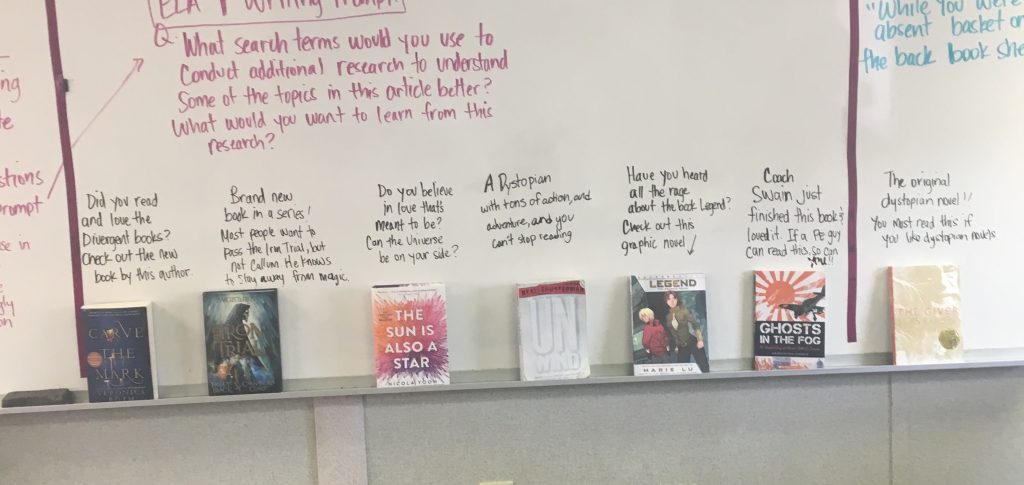 ELA Writing Prompt
Q. What search terms would you use to
Conduct additional research to understand
Some of the topics in this article better?
What would you want to learn from this
research?
"While you were
absent basket on
the back book she
stions
rompt
Did you read
and love the
Divergent books?
Check out the new
book by this author.
Brand new
book in a series!
Most people want to
pass the Iron Trial, but
not Callum. He knows
to stay away from magic.
Do you believe
in love that's
meant to be?
Can the Universe
be on your side?
A Dystopian
with tons of action, and
adventure, and you
can't stop reading
Have you heard
all the rage
about the book Legend?
Check out this
graphic novel ↓
Coach
Swain just
finished this book &
loved it. If a PE guy
can read this, so can
you!!
The original
dystopian novel!!
You must read this if
you like dystopian novels
CARVE
THE
MARK
VERONICA
IRON
TRIAL
THE
SUN IS
ALSO A
STAR
NICOLA YOON
UN
WIND
LEGEND
MARIE LU
GHOSTS
IN THE FOG
THE GIVER